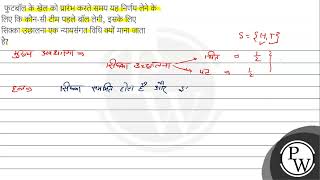 फुटबॉल के खेल को प्रारंभ करते समय यह निर्णय लेने के
लिए कि कौन-सी टीम पहले बॉल लेगी, इसके लिए
सिक्का उछालना एक न्यायसंगत विधि क्यों माना जाता
है?
S = {H,T}
मुख्य अवधारणा
सिक्का उछालना
चित = 1/2
पट = 1/2
हल
सिक्का सममित होता है और
PW